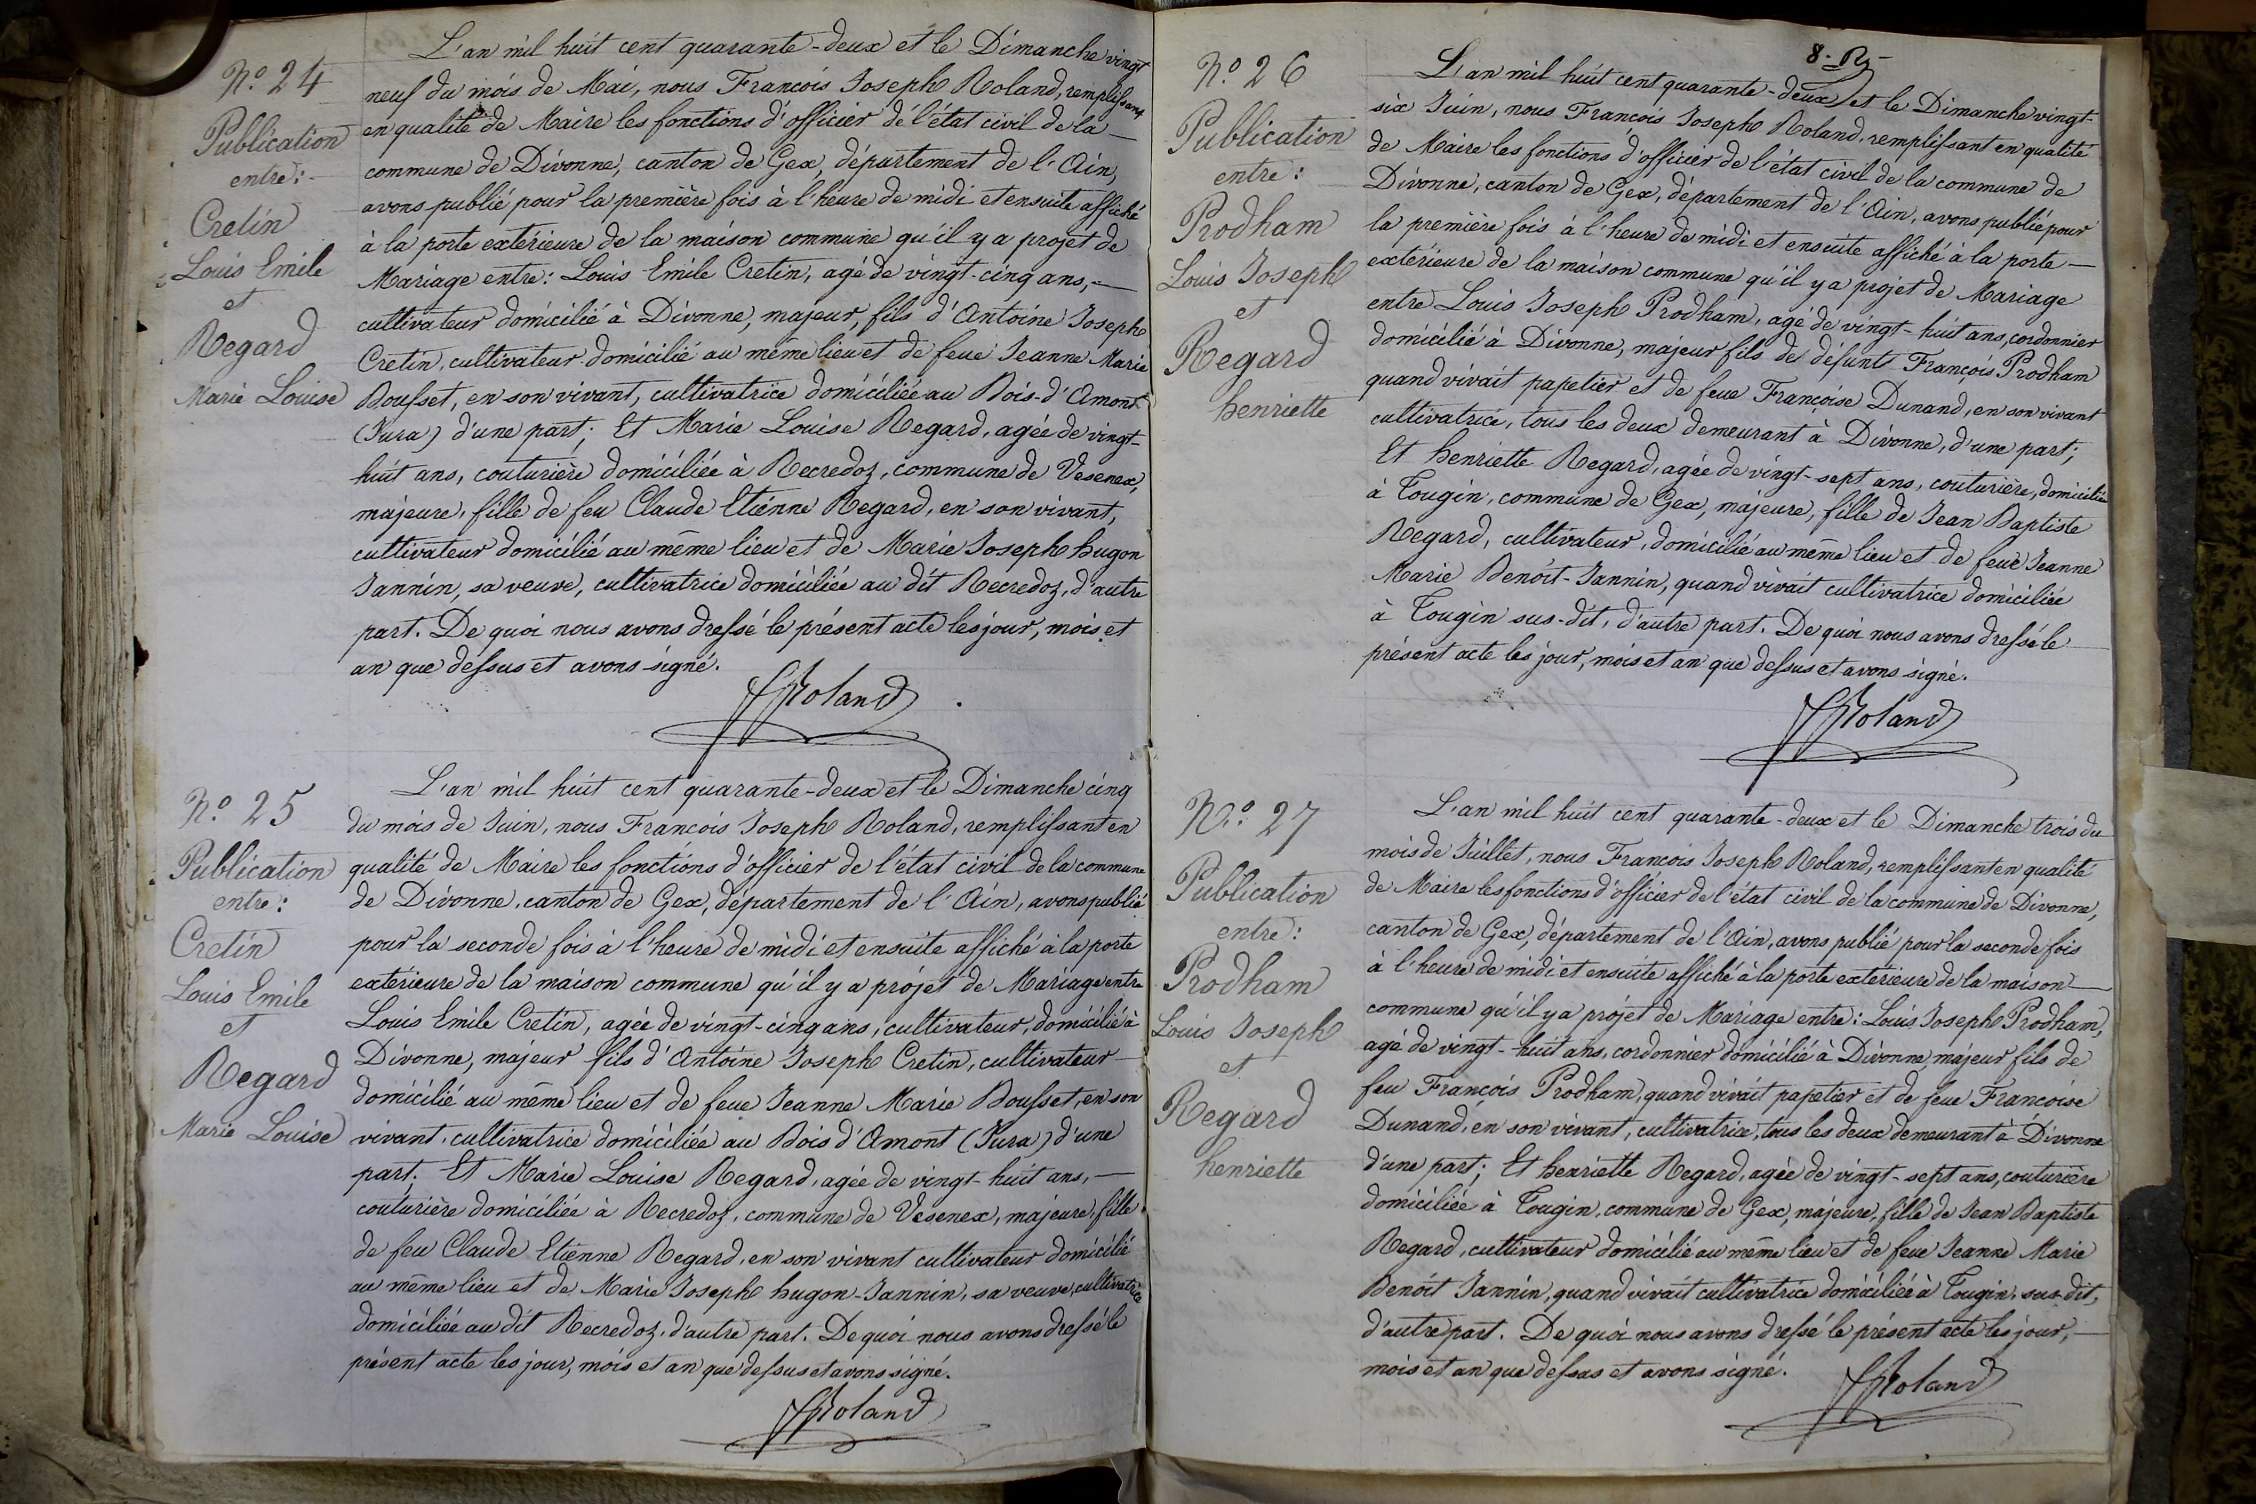 N.º 24
Publication
entre:
Cretin
Louis Emile
et
Regard
Marie Louise
L'an mil huit cent quarante-deux et le Dimanche vingt
neuf du mois de Mai, nous François Joseph Roland, remplissant
en qualité de Maire les fonctions d'officier de l'état civil de la
commune de Divonne, canton de Gex, département de l'Ain,
avons publié pour la première fois à l'heure de midi et ensuite affiché
à la porte extérieure de la maison commune qu'il y a projet de
Mariage entre: Louis Emile Cretin, agé de vingt-cinq ans,
cultivateur domicilié à Divonne, majeur, fils d'Antoine Joseph
Cretin, cultivateur domicilié au même lieu et de feue Jeanne Marie
Bousset, en son vivant, cultivatrice domiciliée au Bois-d'Amont
(Jura) d'une part; Et Marie Louise Regard, agée de vingt-
huit ans, couturière domiciliée à Recredoz, commune de Vesenex,
majeure, fille de feu Claude Etienne Regard, en son vivant,
cultivateur domicilié au même lieu et de Marie Joseph hugon
Jannin, sa veuve, cultivatrice domiciliée au dit Recredoz, d'autre
part. De quoi nous avons dressé le présent acte les jour, mois et
an que dessus et avons signé.
FJRoland
N.º 25
Publication
entre:
Cretin
Louis Emile
et
Regard
Marie Louise
L'an mil huit cent quarante-deux et le Dimanche cinq
du mois de Juin, nous François Joseph Roland, remplissant en
qualité de Maire les fonctions d'officier de l'état civil de la commune
de Divonne, canton de Gex, département de l'Ain, avons publié
pour la seconde fois à l'heure de midi et ensuite affiché à la porte
exterieure de la maison commune qu'il y a projet de Mariage entre
Louis Emile Cretin, agée de vingt-cinq ans, cultivateur, domicilié à
Divonne, majeur fils d'Antoine Joseph Cretin, cultivateur
domicilié au même lieu et de feue Jeanne Marie Bousset, en son
vivant, cultivatrice domiciliée au Bois d'Amont (Jura) d'une
part; Et Marie Louise Regard, agée de vingt-huit ans,
couturière domiciliée à Recredoz, commune de Vesenex, majeure, fille
de feu Claude Etienne Regard, en son vivant cultivateur domicilié
au même lieu et de Marie Joseph hugon-Jannin, sa veuve, cultivatrice
domiciliée au dit Recredoz, d'autre part. De quoi nous avons dressé le
présent acte les jour, mois et an que dessus et avons signé.
FJRoland
8-
N.º 26
Publication
entre:
Prodham
Louis Joseph
et
Regard
henriette
L'an mil huit cent quarante-deux et le Dimanche vingt-
six Juin, nous François Joseph Roland, remplissant en qualité
de Maire les fonctions d'officier de l'état civil de la commune de
Divonne, canton de Gex, département de l'Ain, avons publié pour
la première fois à l'heure de midi et ensuite affiché à la porte
extérieure de la maison commune qu'il y a projet de Mariage
entre Louis Joseph Prodham, agé de vingt-huit ans, cordonnier
domicilié à Divonne, majeur fils de défunts François Prodham
quand vivait papetier et de feue Françoise Dunand, en son vivant
cultivatrice, tous les deux demeurant à Divonne, d'une part;
Et henriette Regard, agée de vingt-sept ans, couturière, domiciliée
à Tougin, commune de Gex, majeure, fille de Jean Baptiste
Regard, cultivateur, domicilié au même lieu et de feue Jeanne
Marie Benoit-Jannin, quand vivait cultivatrice domiciliée
à Tougin sus-dit, d'autre part. De quoi nous avons dressé le
présent acte les jour, mois et an que dessus et avons signé.
FJRoland
N.º 27
Publication
entre:
Prodham
Louis Joseph
et
Regard
henriette
L'an mil huit cent quarante-deux et le Dimanche trois du
mois de Juillet, nous François Joseph Roland, remplissant en qualité
de Maire les fonctions d'officier de l'état civil de la commune de Divonne,
canton de Gex, département de l'Ain, avons publié pour la seconde fois
à l'heure de midi et ensuite affiché à la porte exterieure de la maison
commune qu'il y a projet de Mariage entre: Louis Joseph Prodham,
agé de vingt-huit ans, cordonnier domicilié à Divonne, majeur fils de
feu François Prodham, quand vivait papetier et de feue Françoise
Dunand, en son vivant, cultivatrice, tous les deux demeurant à Divonne
d'une part; Et henriette Regard, agée de vingt-sept ans, couturière
domiciliée à Tougin, commune de Gex, majeure, fille de Jean Baptiste
Regard, cultivateur domicilié au même lieu et de feue Jeanne Marie
Benoit Jannin, quand vivait cultivatrice domiciliée à Tougin, sus-dit,
d'autre part. De quoi nous avons dressé le présent acte les jour,
mois et an que dessus et avons signé.
FJRoland